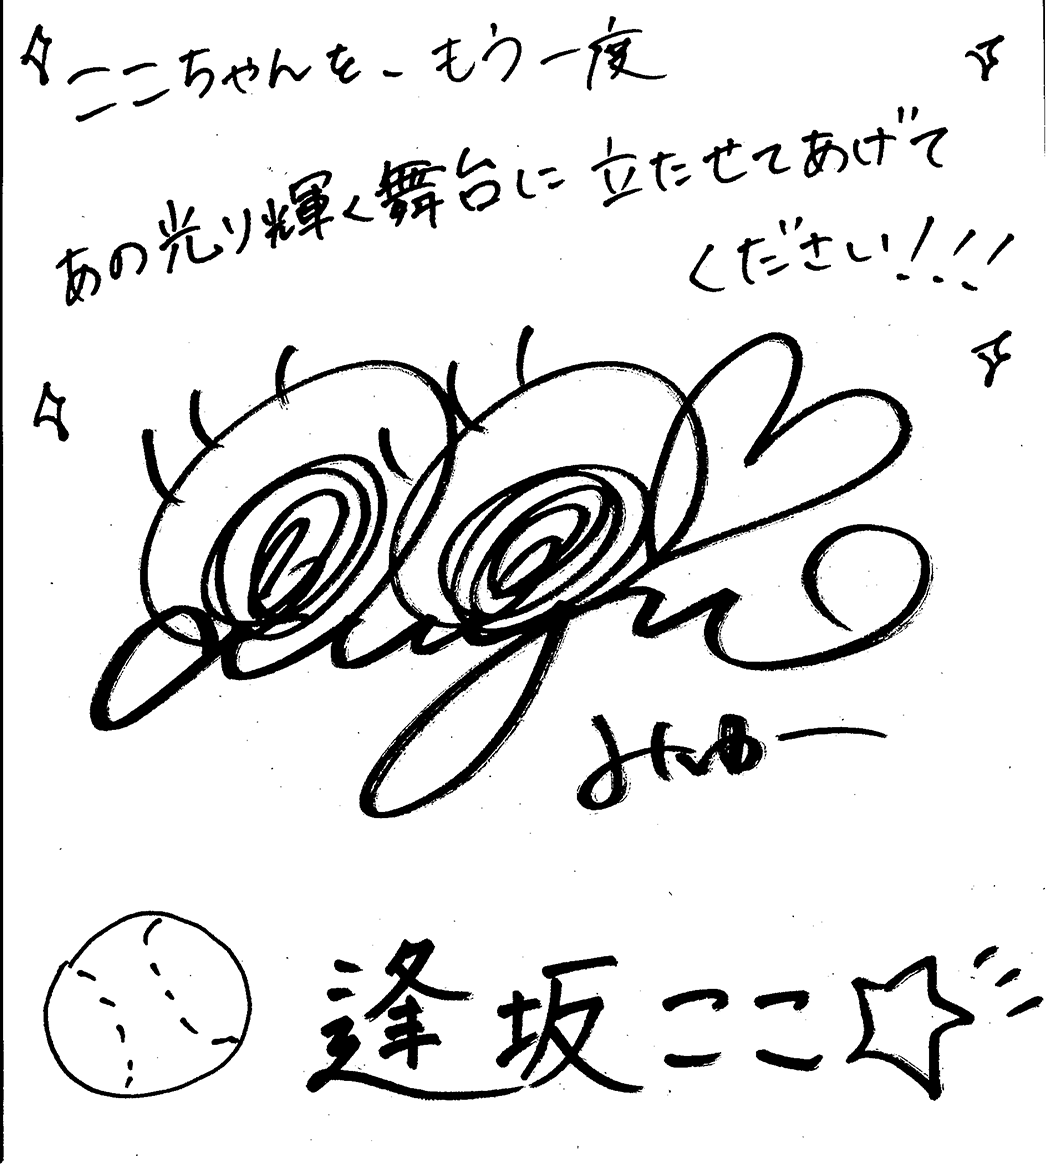 ここちゃんを、もう一度
あの光り輝く舞台に立たせてあげて
ください!!!
逢坂ここ